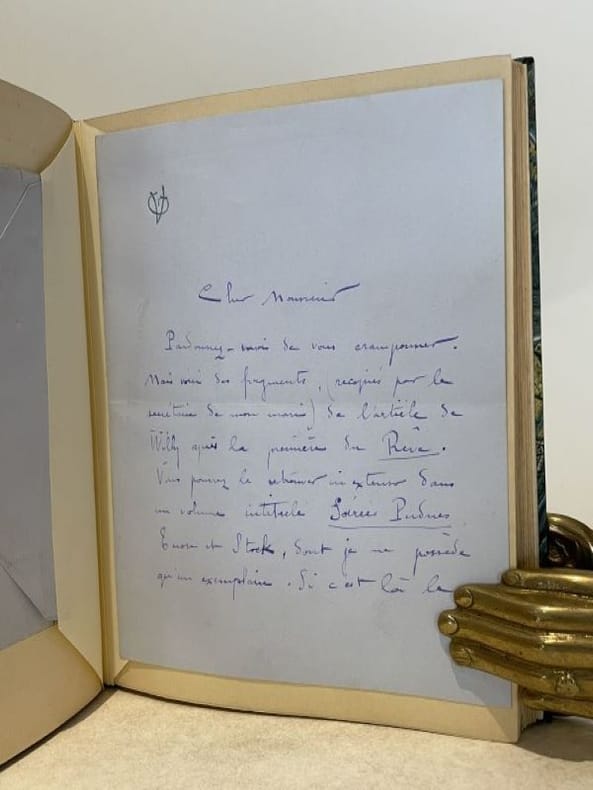 Cher Monsieur
Pardonnez-moi de vous cramponner.
Mais voici des fragments, (recopiés par le
secrétaire de mon mari) de l'article de
Willy après la première du Rêve.
Vous pouvez le retrouver in extenso dans
un volume intitulé Soirées Perdues
et Stock, dont je ne possède
qu'un exemplaire. Si c'est là le